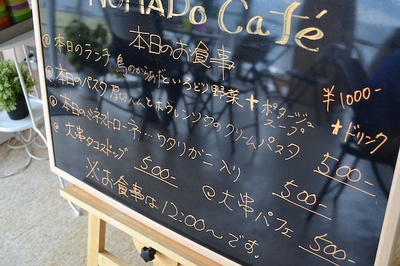 NOMADO Café
本日のお食事
@本日のランチ 鳥のからあげといろどり野菜 + ポタージュスープ ¥1000-
@本日のパスタ 厚切ベーコンとホウレンソウのクリームパスタ + ドリンク
@本日のミネストローネ…ワタリガニ入り 500-
@大串タコスドッグ 500-
@大串パフェ 500-
※お食事は12:00〜です。
500-